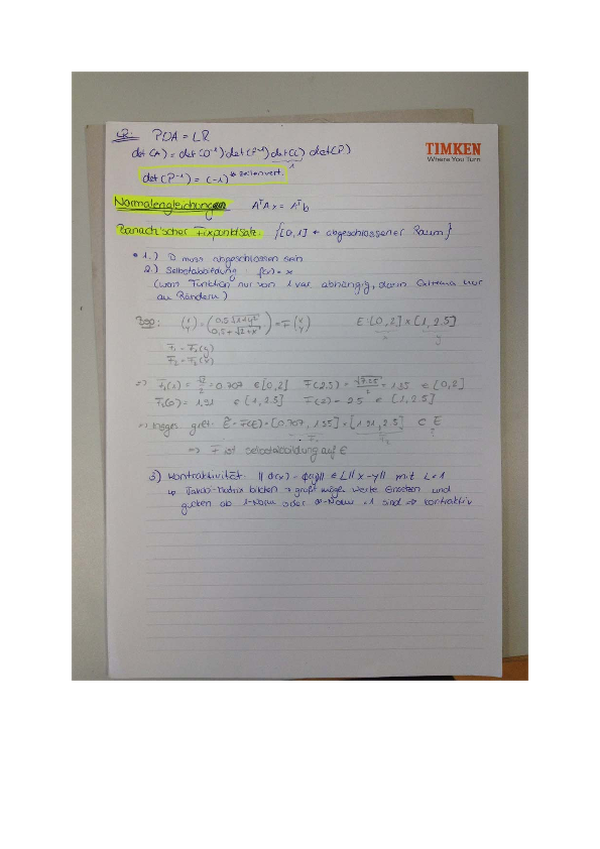 LR: PDA = LR
TIMKEN
Where You Turn
det(A) = det(D⁻¹) det(P⁻¹) det(L) det(R)
1
det(P⁻¹) = (-1)^# Zeilenvert.
Normalengleichungen AᵀAx = Aᵀb
Banach'scher Fixpunktsatz: {[0,1] ← abgeschlossener Raum}
1.) D muss abgeschlossen sein
2.) Selbstabbildung f(x) = x
(wenn Funktion nur von 1 Var. abhängig, dann Extrema nur
an Rändern)
(x y) = (0,5√1+y² 0,5+√1+x) = F(x y) E: [0,2] x [1, 2.5]
x y
F₁ = F₁(y)
F₂ = F₂(x)
=> F₁(1) = √2/2 = 0.707 ∈ [0,2] F(2.5) = √7.25/2 = 1.35 ∈ [0,2]
F₂(0) = ∈ [1, 2.5] F(2) = 2.5 ∈ [1, 2.5]
=> gilt: Ẽ = F(E) = [0.707, 1.35] x [, 2.5] ⊂ E
F₁ F₂
=> F ist Selbstabbildung auf E
3) Kontraktivität: ||ϕ(x) - ϕ(y)|| ≤ L||x-y|| mit L<1
↳ Jacobi-Matrix bilden → größtmögl. Werte einsetzen und
ob 1-Norm oder ∞-Norm <1 sind => kontraktiv